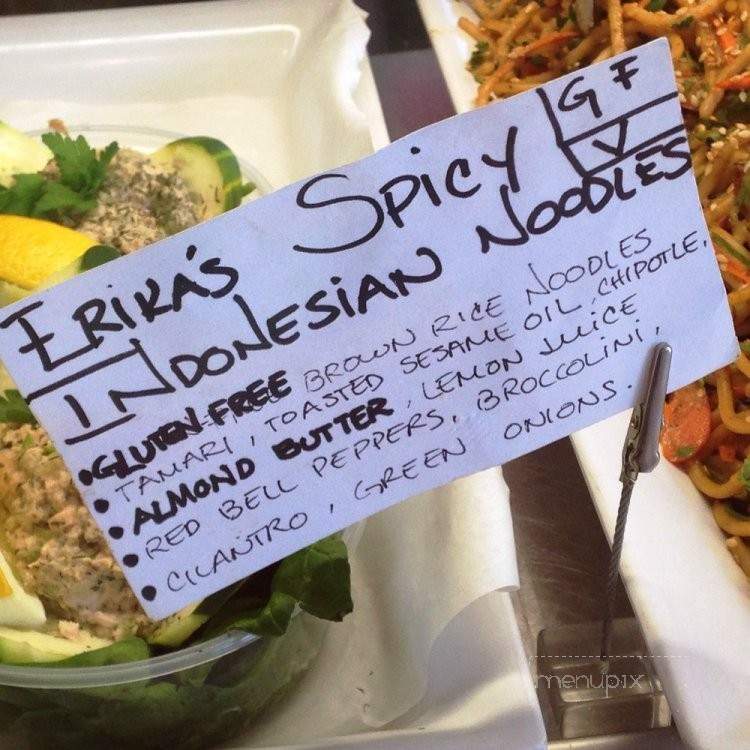 ERIKA'S SPICY
INDONESIAN NOODLES
GF
V
•GLUTEN-FREE BROWN RICE NOODLES
• TAMARI, TOASTED SESAME OIL, CHIPOTLE,
• ALMOND BUTTER, LEMON JUICE
• RED BELL PEPPERS, BROCCOLINI,
• CILANTRO, GREEN ONIONS.
menupix